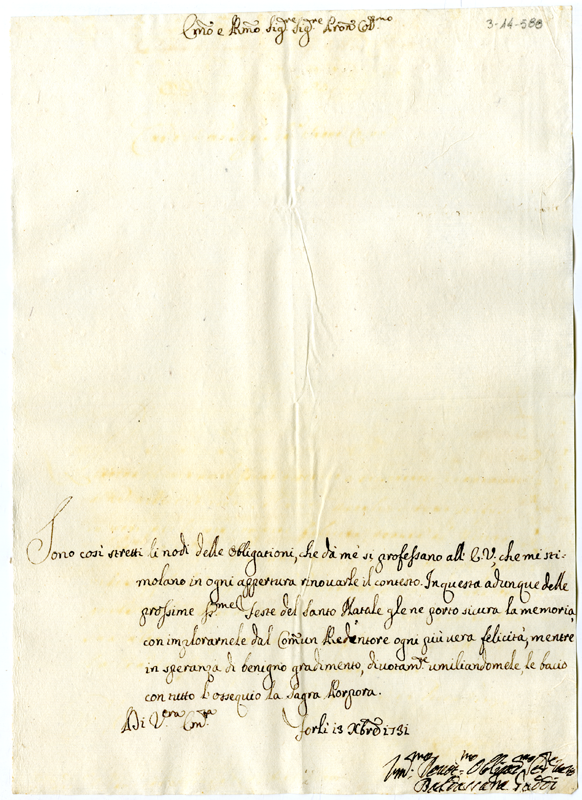 3-14-588
Emo e Rmo Sigre Sigre Pron Colmo
Sono così stretti li nodi delle obligationi, che da me si professano all' E.V., che mi sti-
molano in ogni appertura rinovarle il contesto. In questa adunque delle
prossime Sme Feste del Santo Natale gle ne porto sicura la memoria,
con implorarnele dal Comun Redentore ogni più vera felicità, mentre
in speranza di benigno gradimento, divotamte umiliandomele, le bacio
con tutto l'ossequio la Sagra Porpora.
Di V.ra Emza
Forlì 13 Xbro 1731
Baldassarre